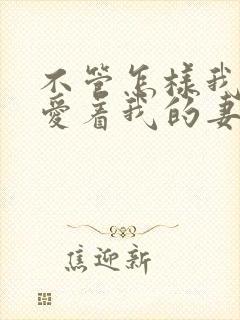 不管怎样我
爱着我的妻
焦迎新